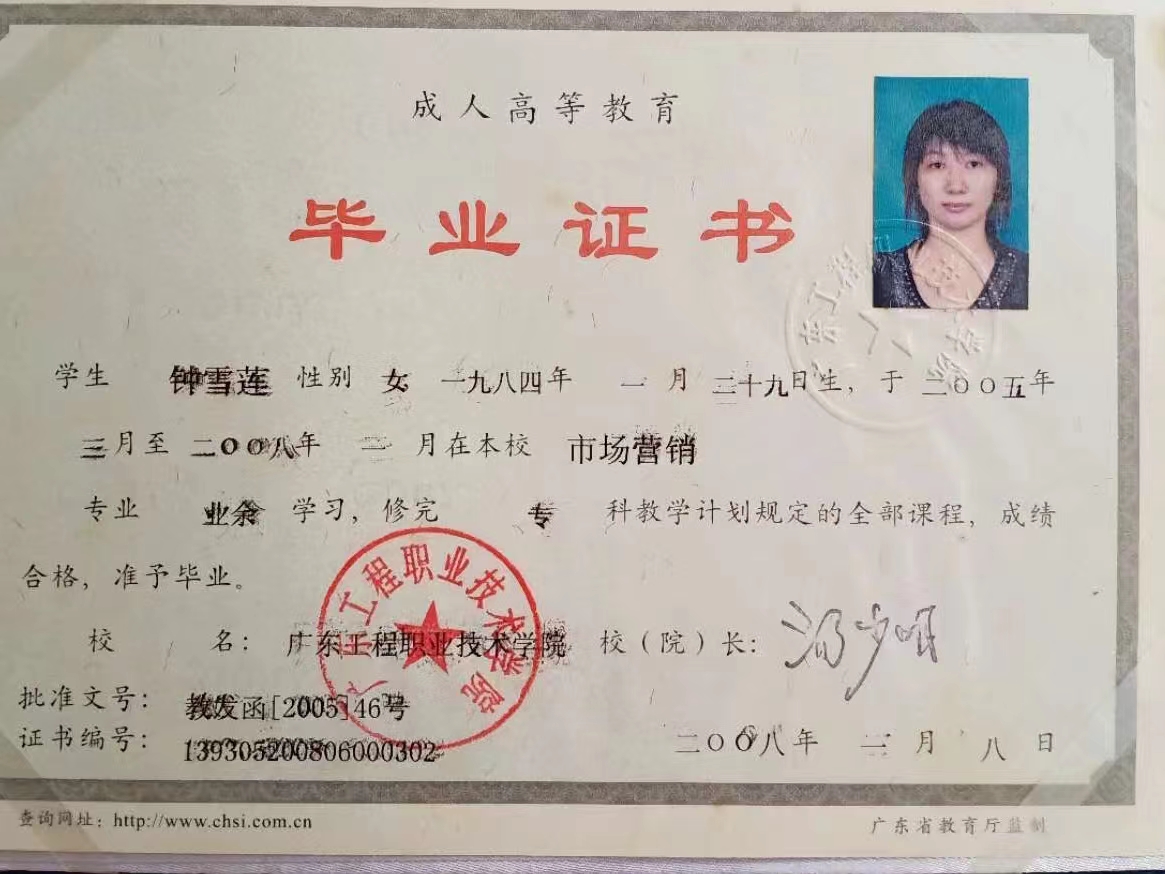 成人高等教育
毕业证书
学生 钟雪莲 性别 女 一九八四年 一月 二十九日生，于 二〇〇五年
三月至 二〇〇八年 月在本校 市场营销
专业 业余 学习，修完 专 科教学计划规定的全部课程，成绩
合格，准予毕业。
校 名： 广东工程职业技术学院 校（院）长：
广东工程职业技术学院
批准文号： 教发函[2005]46号
证书编号： 139305200806000302
二〇〇八年 月 八日
查询网址：http://www.chsi.com.cn
广东省教育厅监制